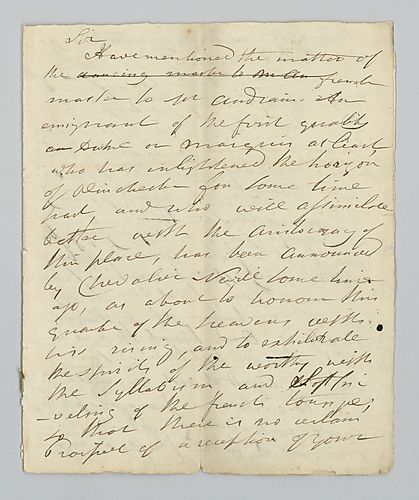 Sir
Have mentioned the matter of
the dancing master to french
master to yr An
emigrant of the first quality
a Duke or marquis at least
who has enlightened the horizon
of Winchester for some time
past, and who will assimilate
better with the aristocracy of
this place, has been announced
by Chevalier some time
ago, as about to honour this
quarter of the heavens with
his rising, and to exhilarate
the spirits of the worthy with
the syllabism and
of the french tongue;
so that there is no certain
Prospect of a reception of your